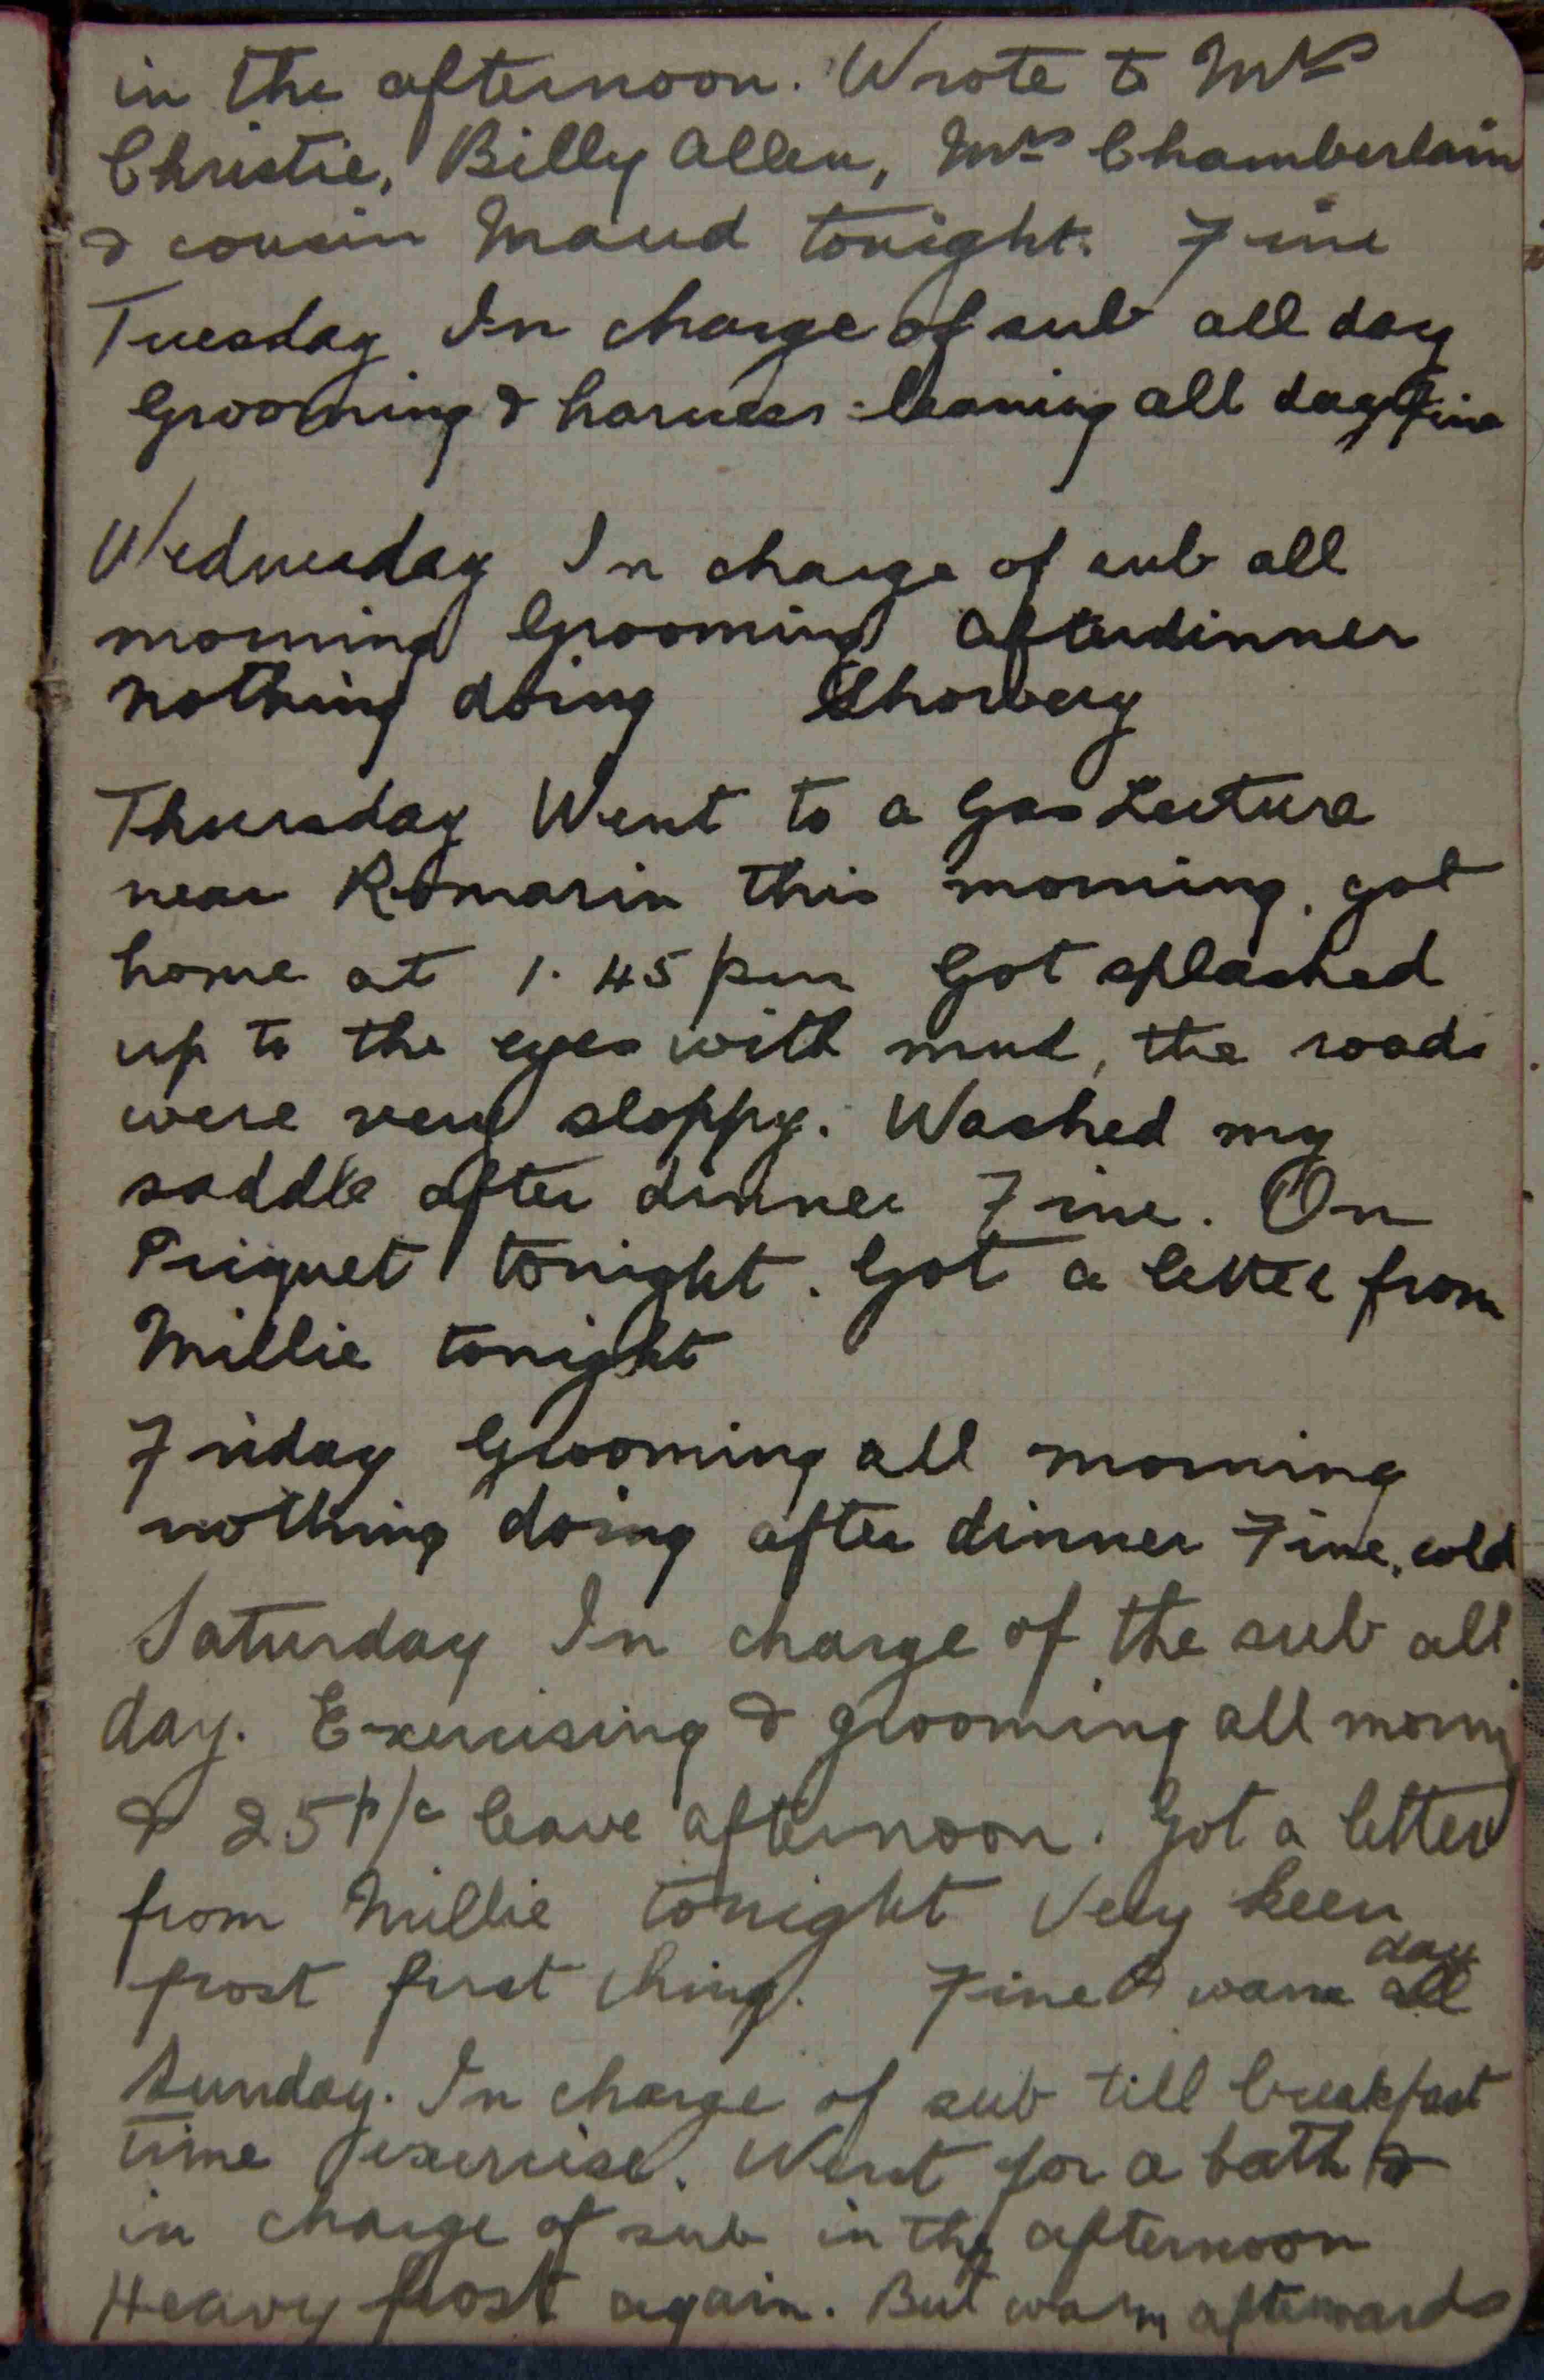 in the afternoon. Wrote to Mrs
Christie, Billy Allen, Mrs Chamberlain
& cousin Maud tonight. Fine
Tuesday In charge of sub all day
Grooming & harness cleaning all day Fine
Wednesday In charge of sub all
morning Grooming afterdinner
nothing doing Showery
Thursday Went to a Gas Lecture
near Romarin this morning. got
home at 1.45 pm Got splashed
up to the eyes with mud, the roads
were very sloppy. Washed my
saddle after dinner Fine. On
Picquet tonight. Got a letter from
Millie tonight
Friday Grooming all morning
nothing doing after dinner Fine, cold
Saturday In charge of the sub all
day. Exercising & grooming all morning
& 25 p/c leave afternoon. Got a letter
from Millie tonight Very keen
frost first thing. Fine & warm all day
Sunday. In charge of sub till breakfast
time exercise. Went for a bath &
in charge of sub in the afternoon
Heavy frost again. But warm afterwards